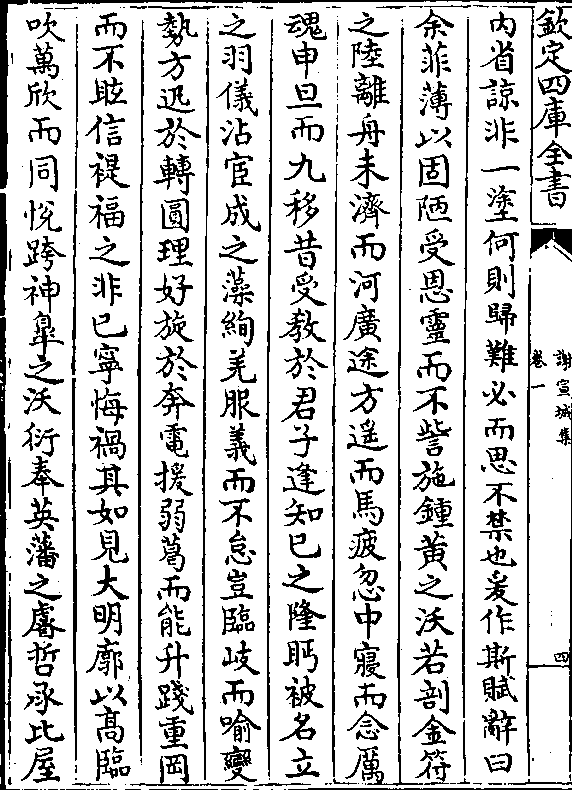 欽定四庫全書
謝宣城集
卷一
四
内省諒非一塗何則歸難必而思不禁也爰作斯賦辭曰
余菲薄以固陋受恩靈而不訾施鍾黄之沃若剖金符
之陸離舟未濟而河廣途方遥而馬疲忽中寢而念厲
魂申旦而九移昔受教於君子逢知已之隆眄被名立
之羽儀沾宦成之藻絢羌服義而不怠豈臨岐而喻變
勢方迅於轉圓理好旋於奔電援弱葛而能升踐重岡
而不眩信禔福之非已寧悔禍其如見大明廓以高臨
吹萬欣而同悦跨神臯之沃衍奉英藩之睿哲承比屋